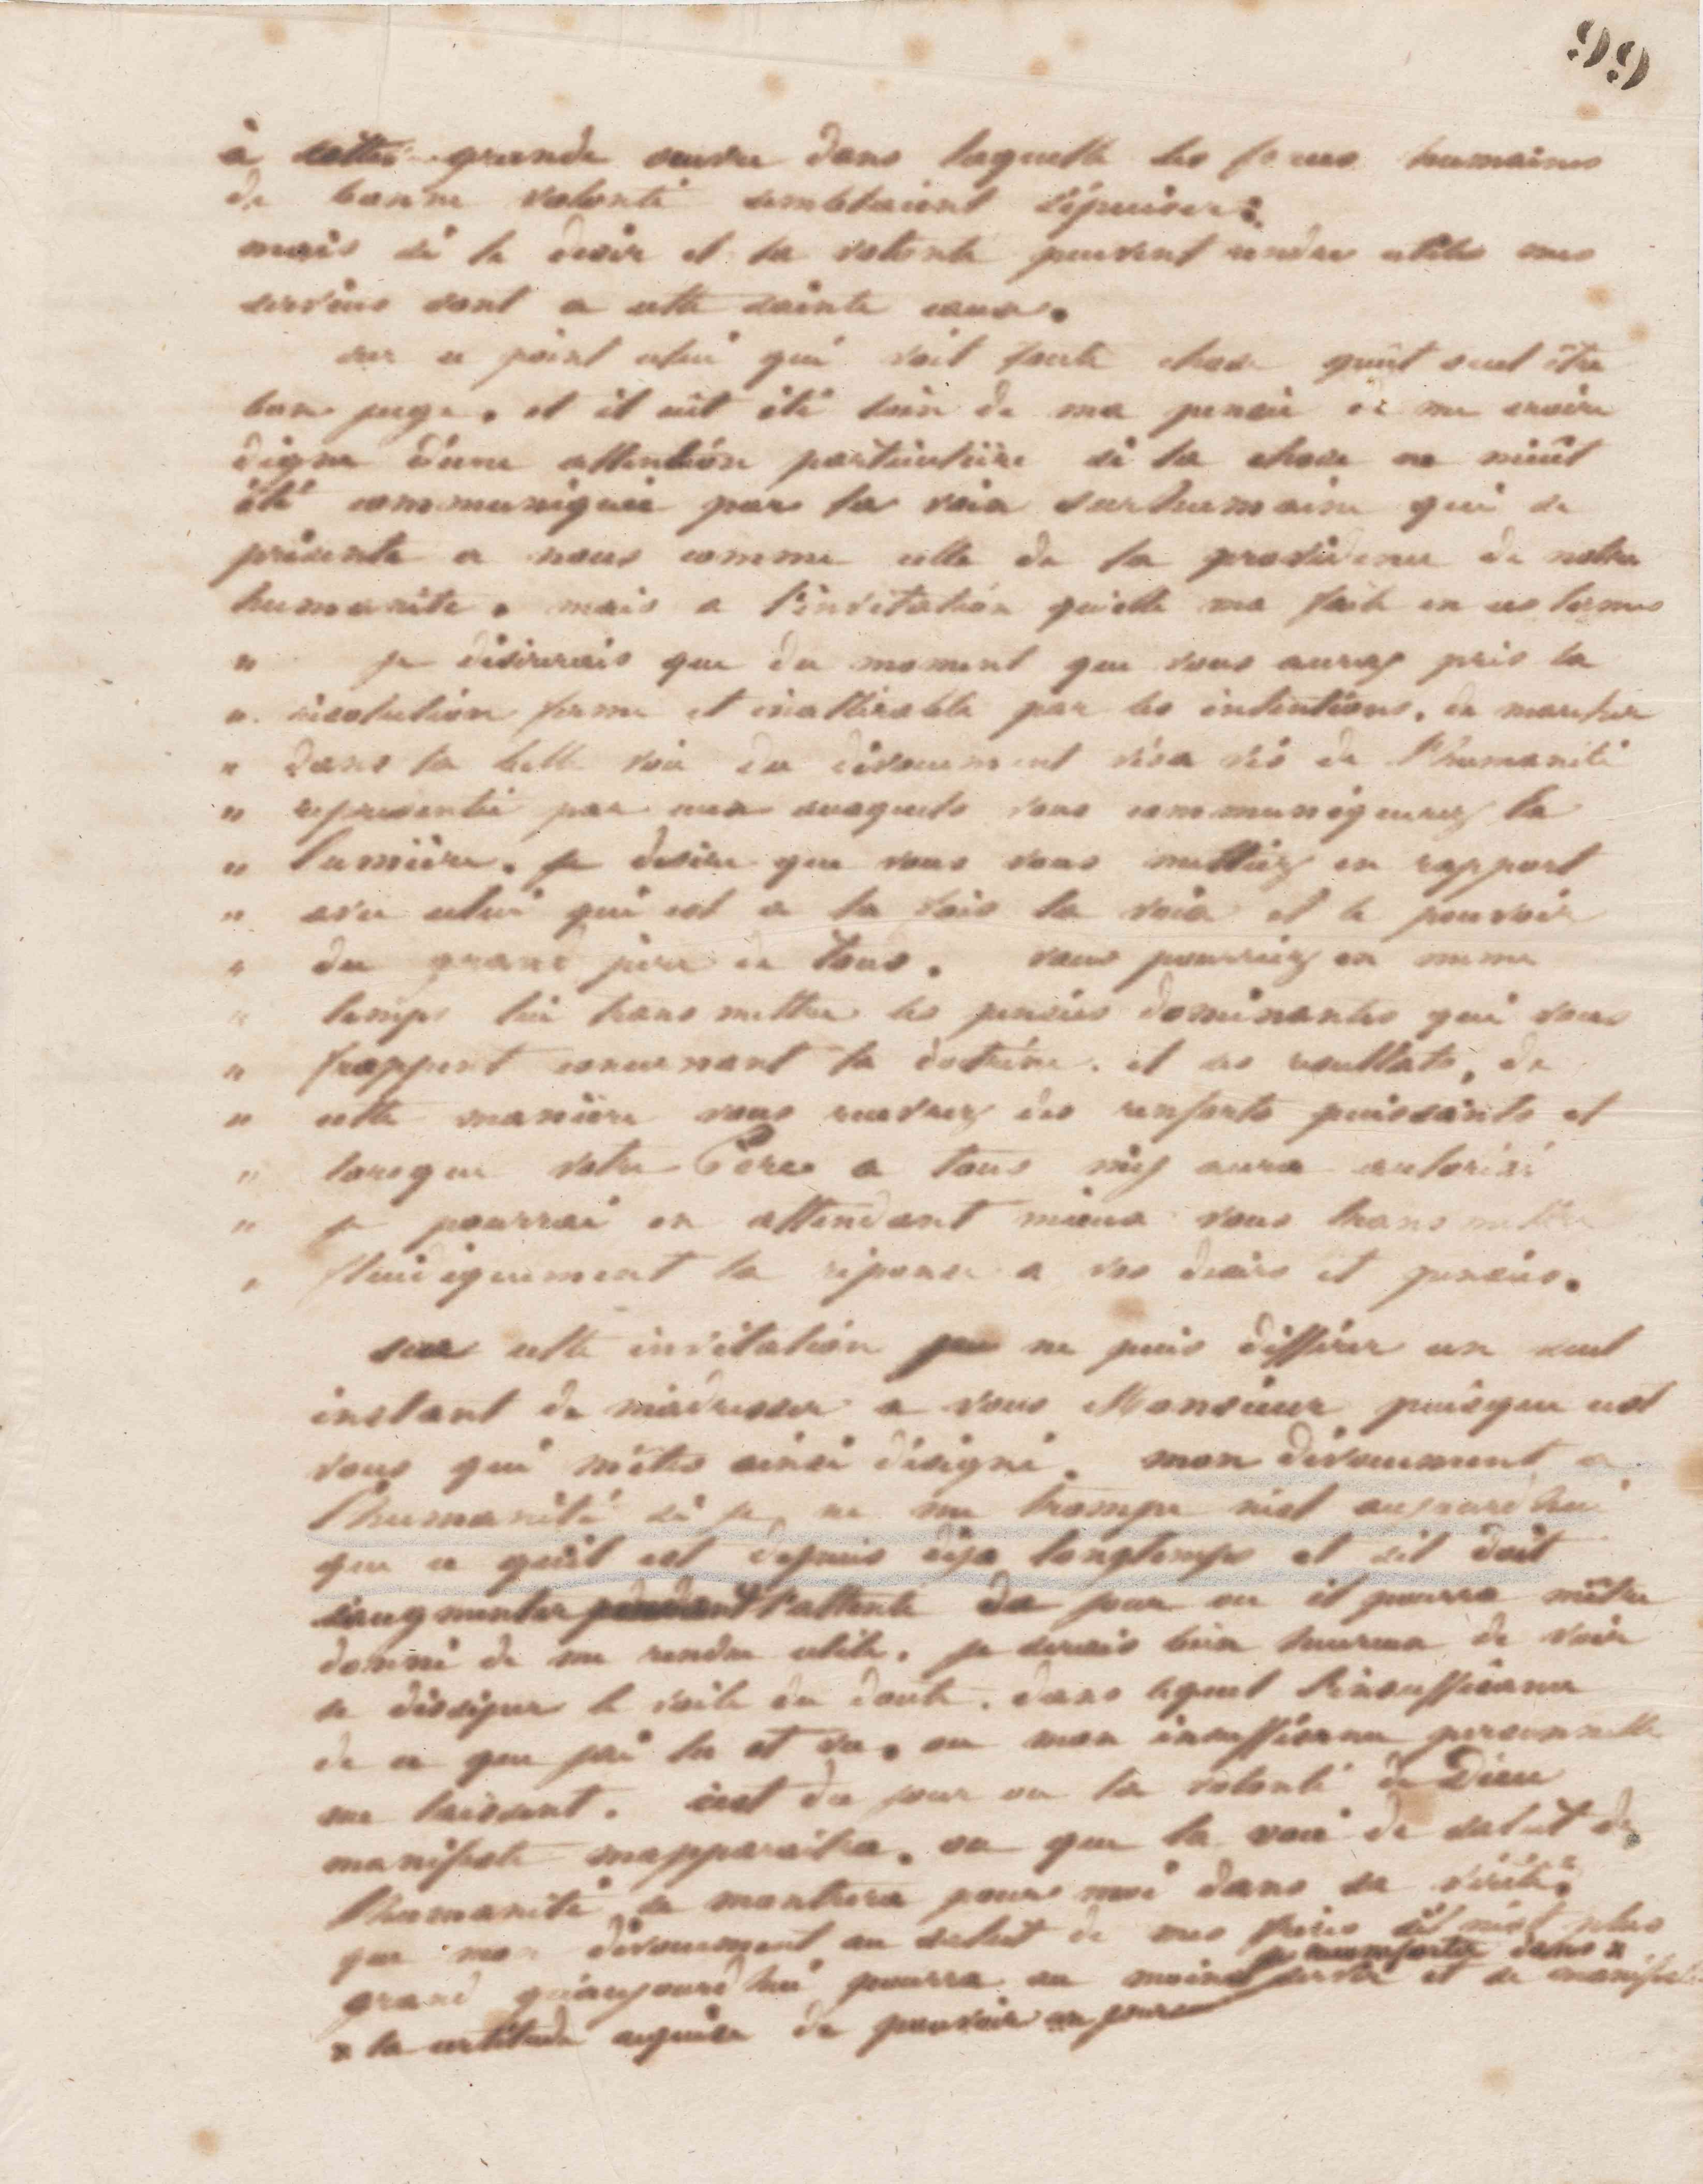 99
à cette grande œuvre dans laquelle les forces humaines
de bonne volonté semblaient s'épuiser.
mais si le desir et la volonté peuvent rendre utiles mes
services sont a cette sainte cause.
sur ce point celui qui voit toute chose peut seul être
bon juge. et il eût été loin de ma pensée de me croire
digne d'une attention particulière si la chose ne m'eût
été communiquée par la voix surhumaine qui se
présente a nous comme celle de la providence de notre
humanité. mais a l'invitation qu'elle ma fait en ces termes
" je désirerais que du moment que vous aurez pris la
" résolution ferme et inaltérable par les intentions, de marcher
" dans la belle voie du dévouement vis a vis de l'humanité
" representée par ceux auxquels vous communiquerez la
" lumière. je desire que vous vous mettiez en rapport
" avec celui qui est a la fois la voix et le pouvoir
" du grand père de tous. vous pourriez en meme
" temps lui transmettre les pensées dominantes qui vous
" frappent concernant la doctrine. et ses resultats, de
" cette manière vous recevrez des renforts puissants et
" lorsque votre Père a tous m'y aura autorisé
" je pourrai en attendant mieux vous transmettre
" fluidiquement la réponse a vos desirs et pensées.
sur cette invitation je ne puis différer un seul
instant de m'adresser a vous Monsieur puisque cest
vous qui m'êtes ainsi désigné. mon dévouement a
l'humanité si je ne me trompe nest aujourd'hui
que ce qu'il est depuis déja longtemps et sil doit
s'augmenter pendant l'attente du jour ou il pourra mêtre
donné de me rendre utile. je serais bien heureux de voir
se dissiper le voile du doute. dans lequel l'insuffisance
de ce que j'ai lu et vu. ou mon insuffisance personnelle
me laissent. c'est du jour ou la volonté de Dieu
manifeste m'apparaitra. ou que la voie de salut de
l'humanité se montrera pour moi dans sa vérité.
que mon dévouement au salut de mes frères sil n'est plus
grand qu'aujourd'hui pourra au moins servir et se manifester
dans x
x la certitude acquise de pouvoir un jour